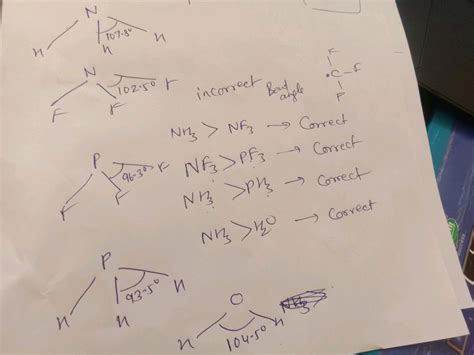 N
H H H
107.8°
N
F F F
102.5°
incorrect Bond angle
F
•C – F
F
NH₃ > NF₃ → Correct
P
F F F
96.3°
NF₃ > PF₃ → Correct
NH₃ > PH₃ → Correct
NH₃ > H₂O → Correct
P
H H H
93.5°
O
H H
104.5°